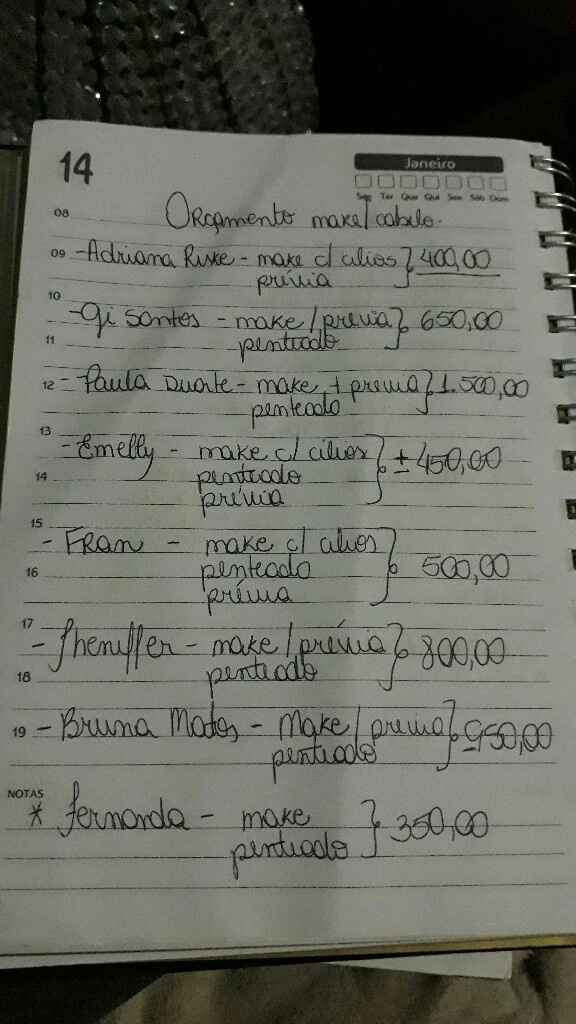 14
Janeiro
Seg Ter Qua Qui Sex Sáb Dom
08 Orçamento make/cabelo.
09 - Adriana Riske - make c/ cílios } 400,00
prévia
10 - Gi Santos - make/previa } 650,00
11 penteado
12 - Paula Duarte - make + previa } 1.500,00
penteado
13 - Emelly - make c/ cílios } ± 450,00
14 penteado
prévia
15 - Fran - make c/ cílios } 500,00
16 penteado
prévia
17 - Jheniffer - make/prévia } 800,00
18 penteado
19 - Bruna Matos - Make/previa } 950,00
penteado
NOTAS
* Fernanda - make } 350,00
penteado